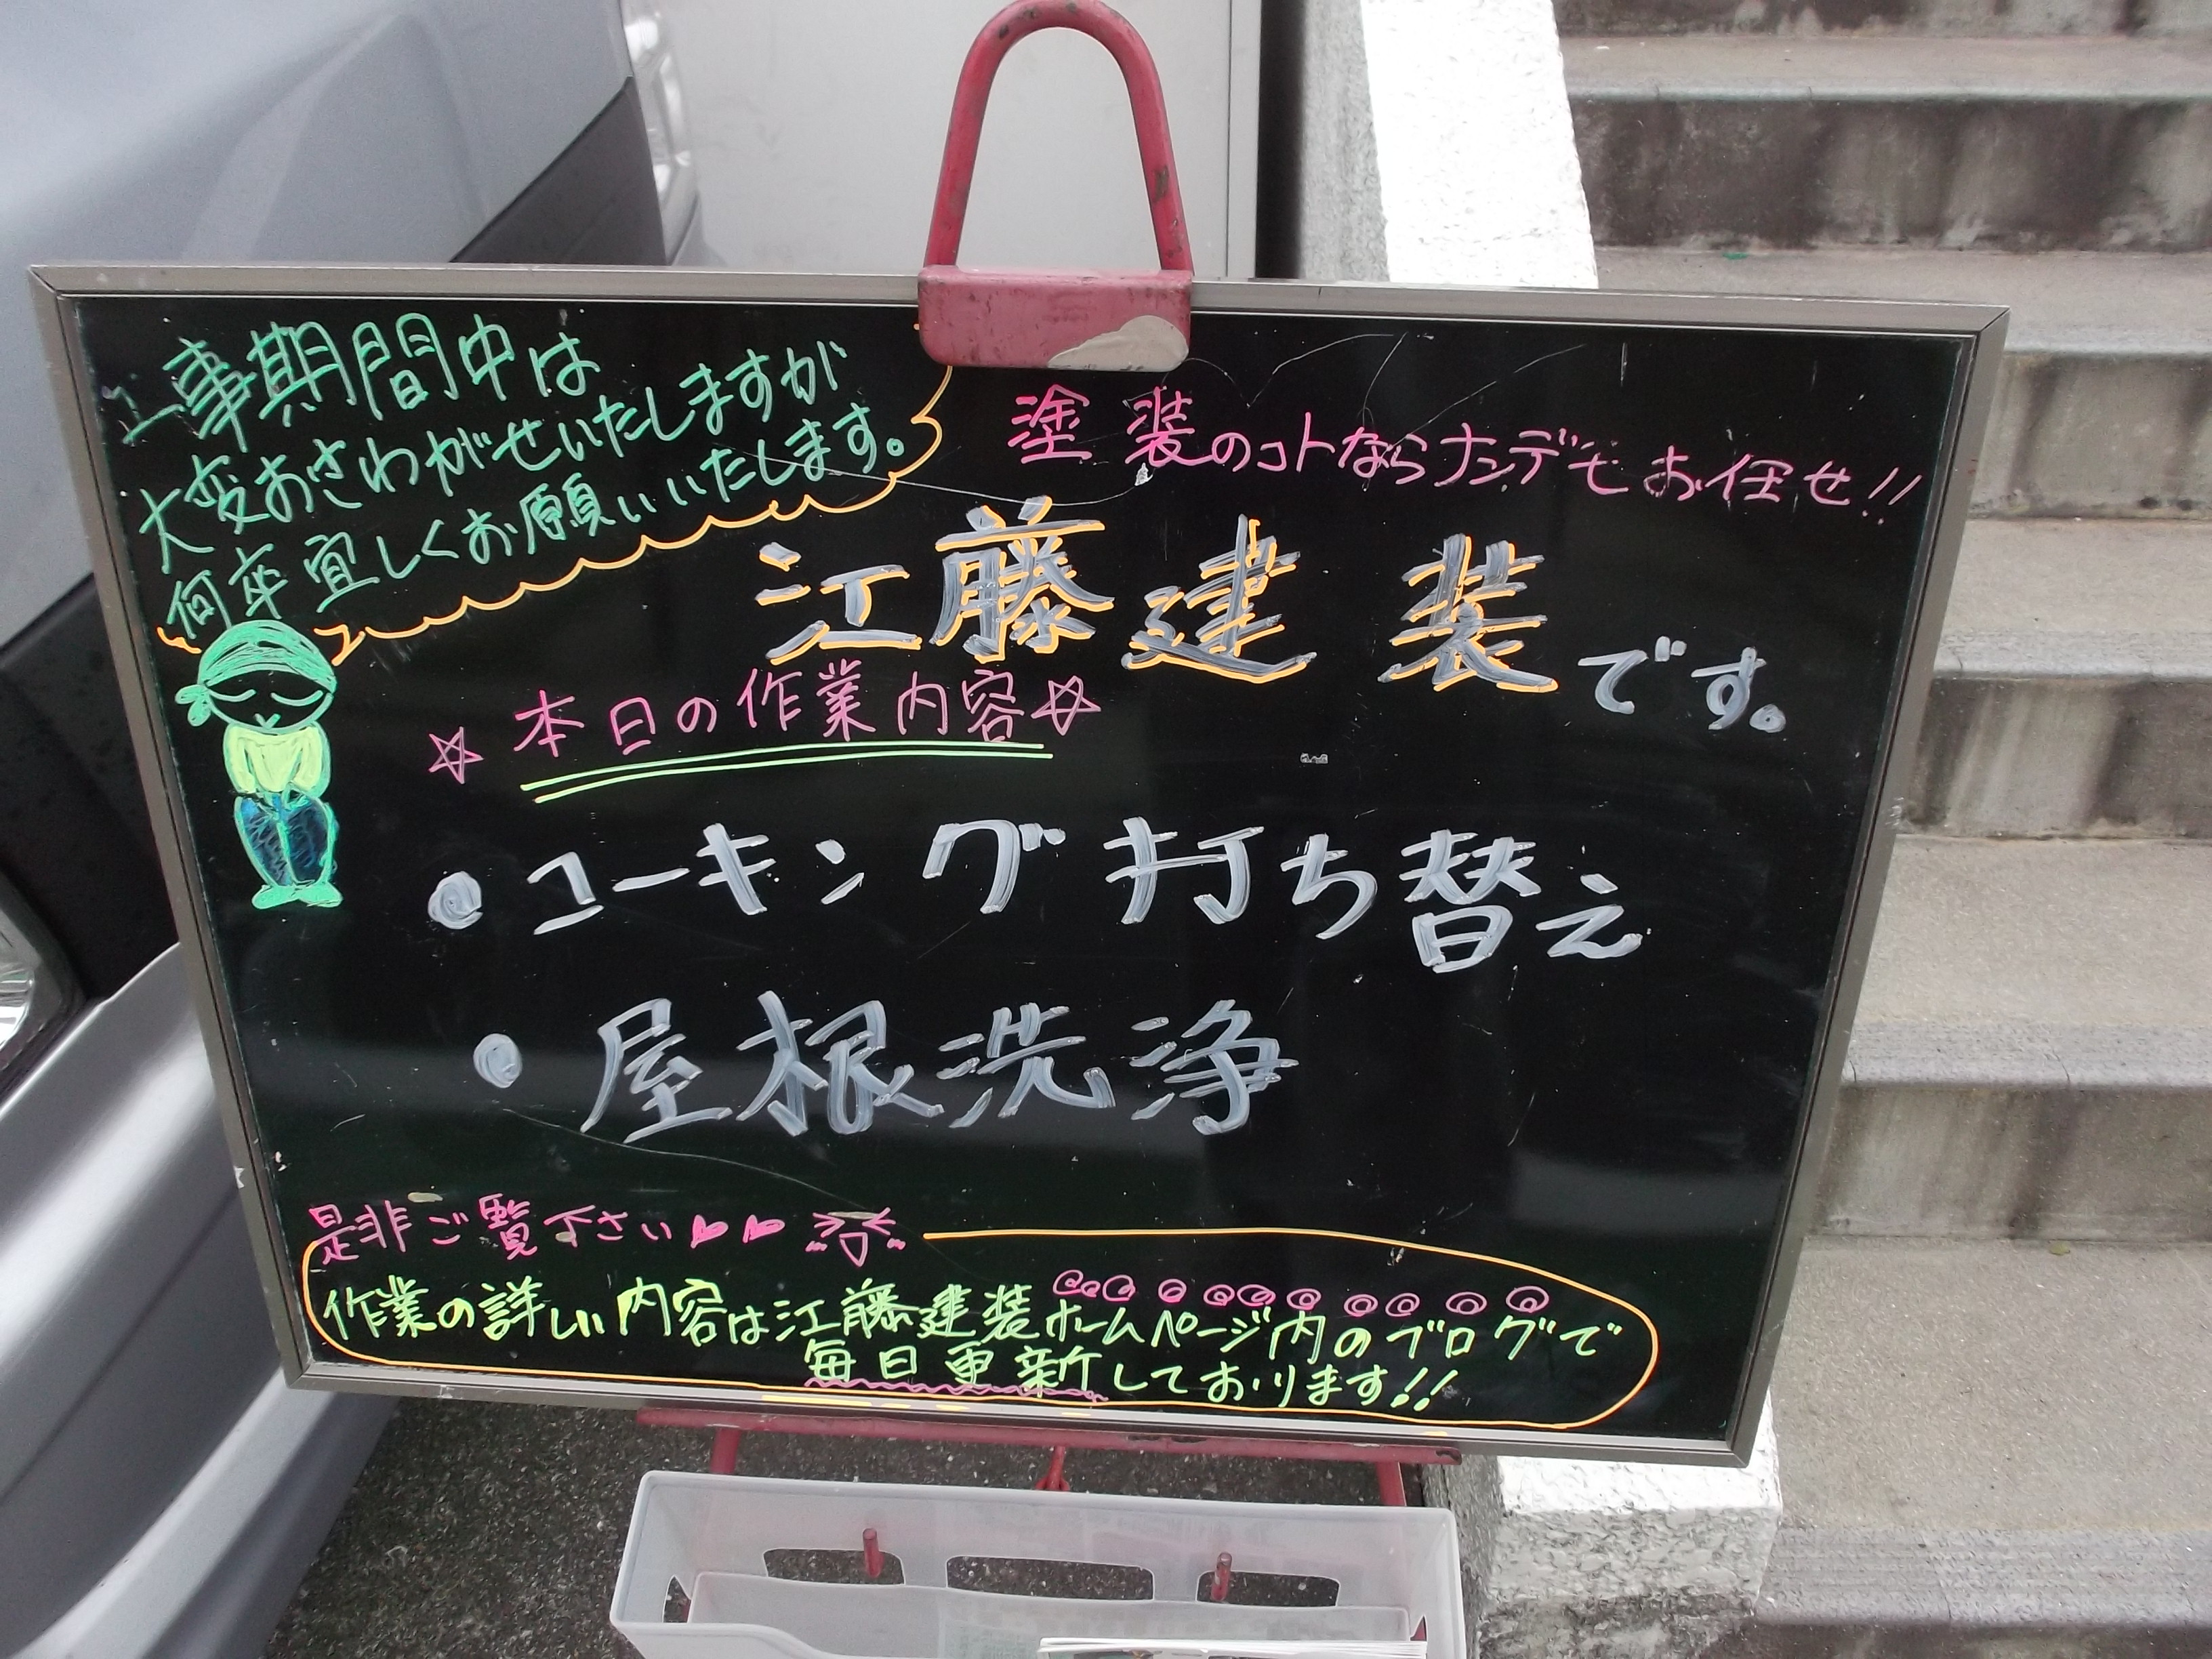 工事期間中は
大変おさわがせいたしますが
何卒宜しくお願いいたします。
塗装のコトならナンデモお任せ!!
江藤建装です。
☆本日の作業内容☆
●コーキング打ち替え
●屋根洗浄
是非ご覧下さい♥♥
作業の詳しい内容は江藤建装ホームページ内のブログで
毎日更新しております!!